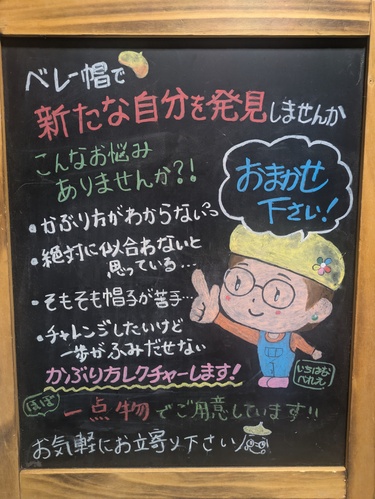 ベレー帽で
新たな自分を発見しませんか
こんなお悩み
ありませんか?!
おまかせ
下さい!
・かぶり方がわからないっ
・絶対に似合わないと
思っている…
・そもそも帽子が苦手…
・チャレンジしたいけど
一歩がふみだせない
かぶり方レクチャーします!
いちはな
べれえ
ほぼ
一点物でご用意しています!!
お気軽にお立寄り下さい